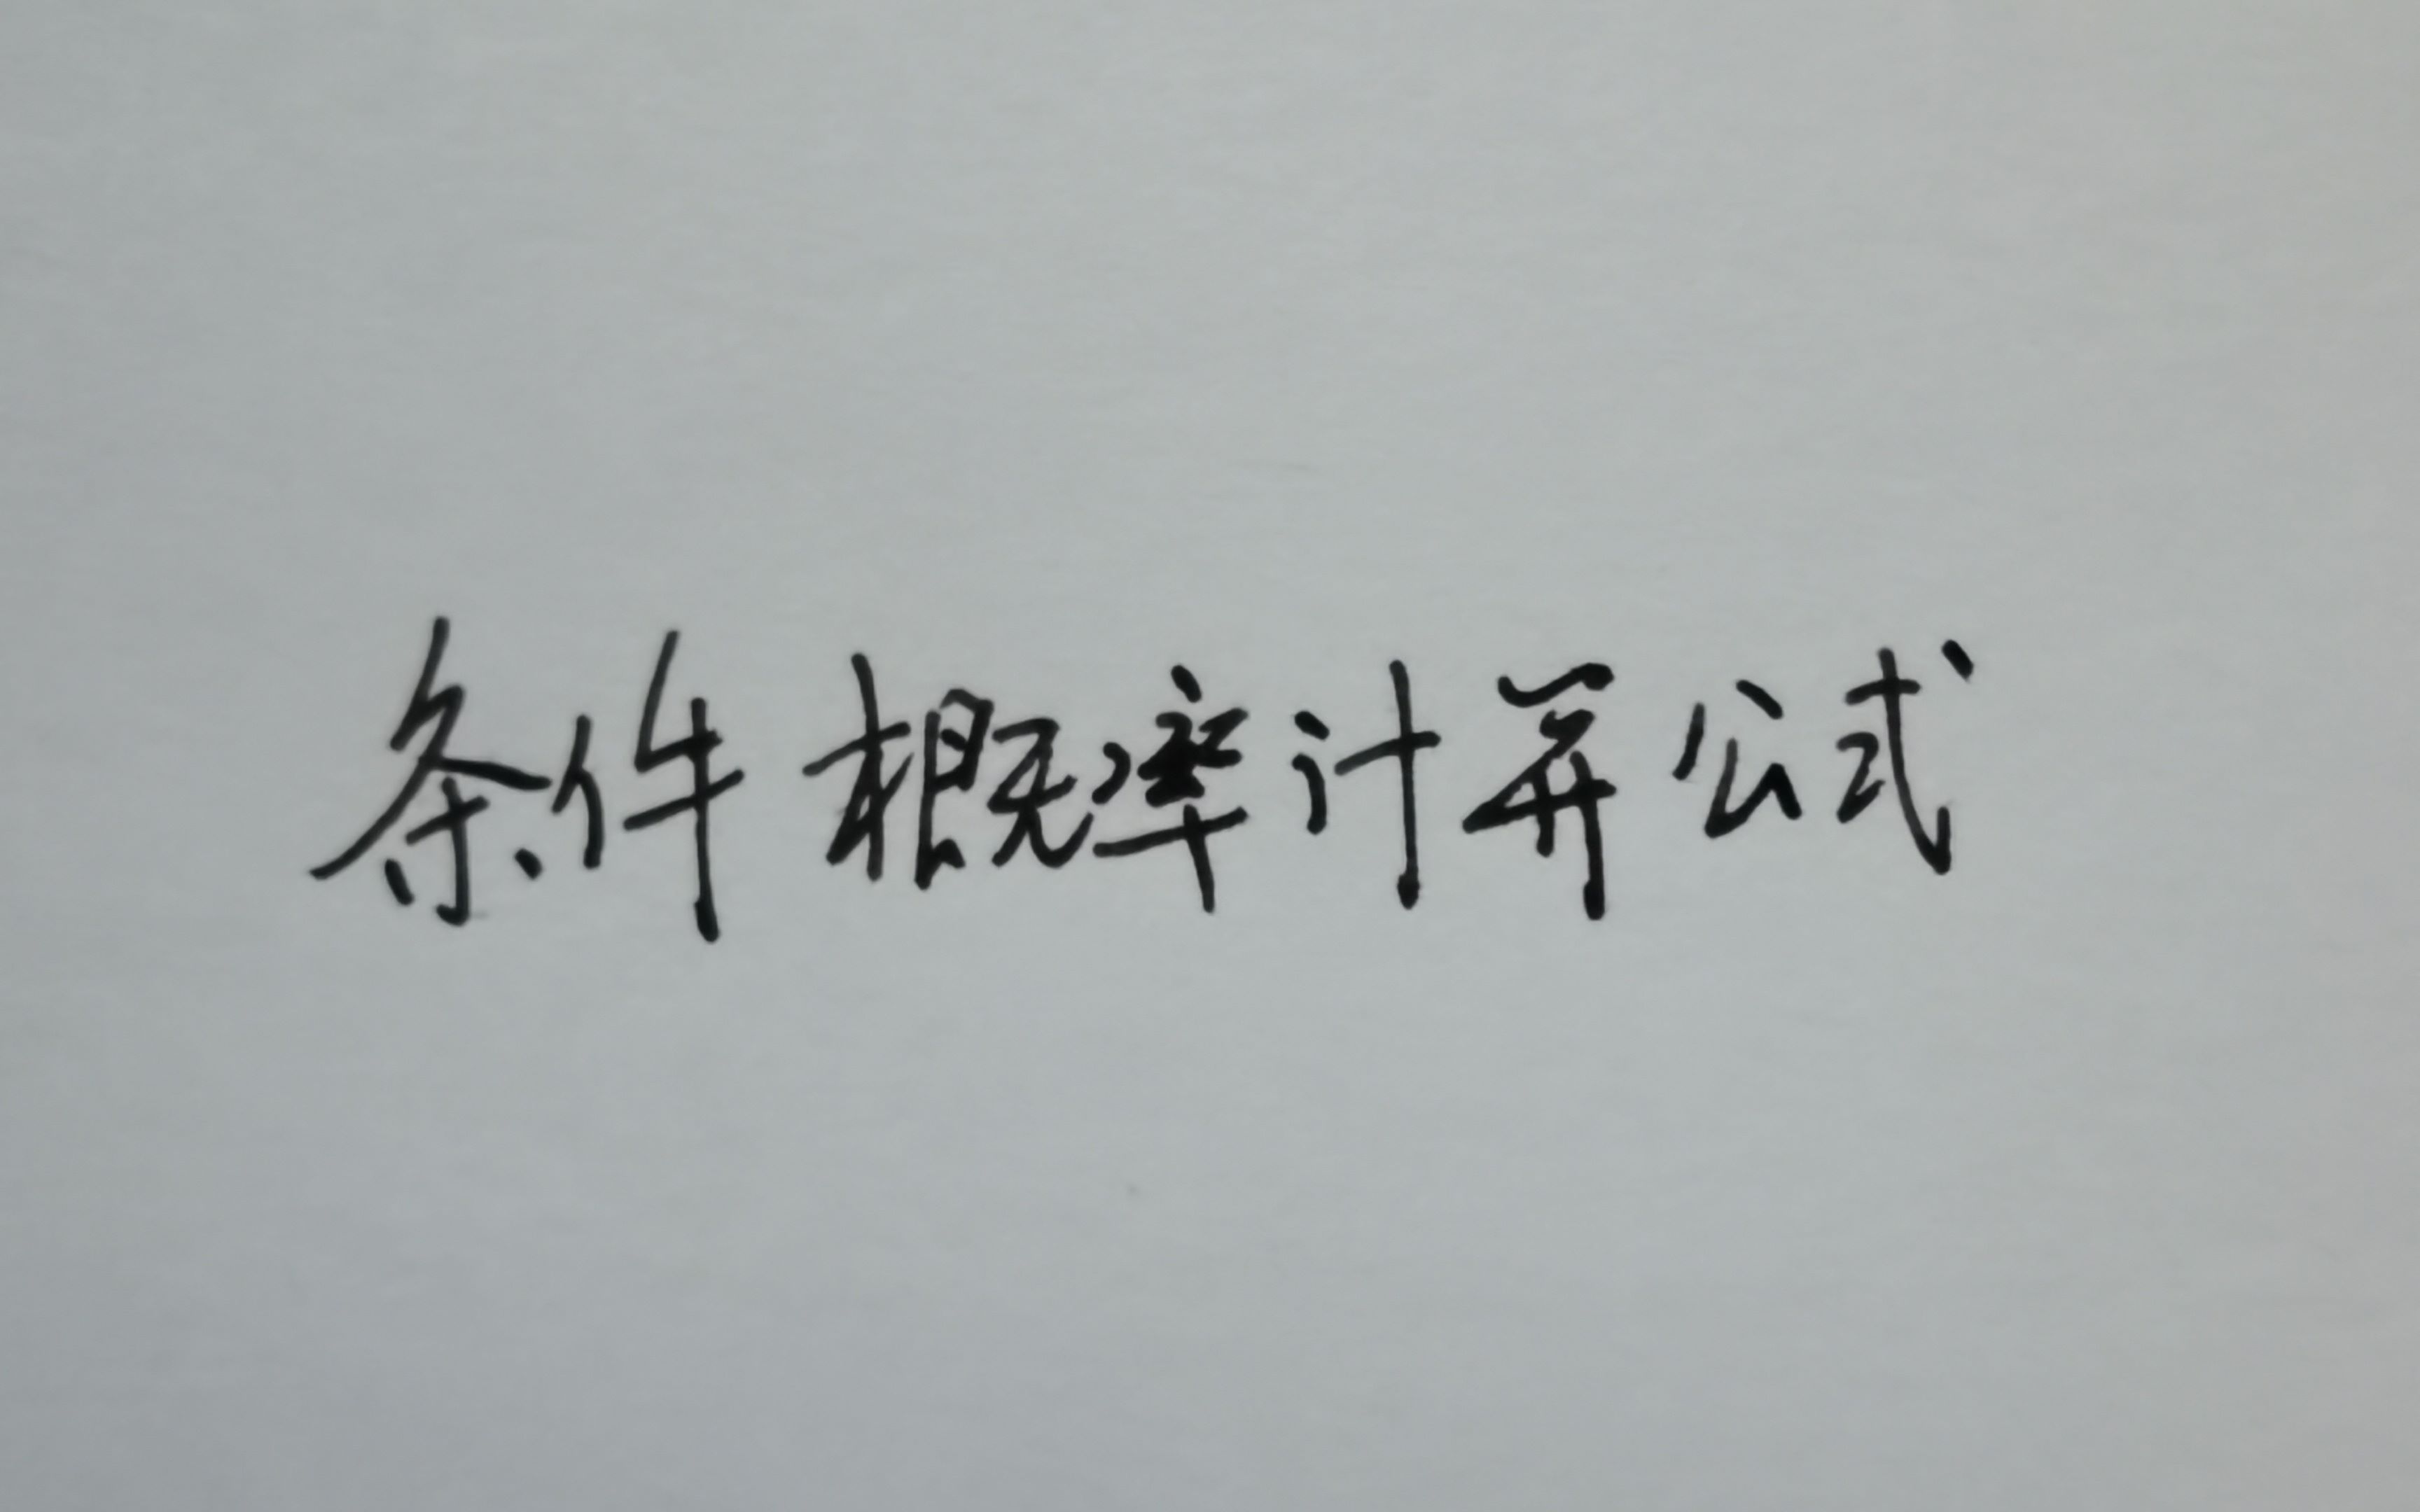 条件概率计算公式